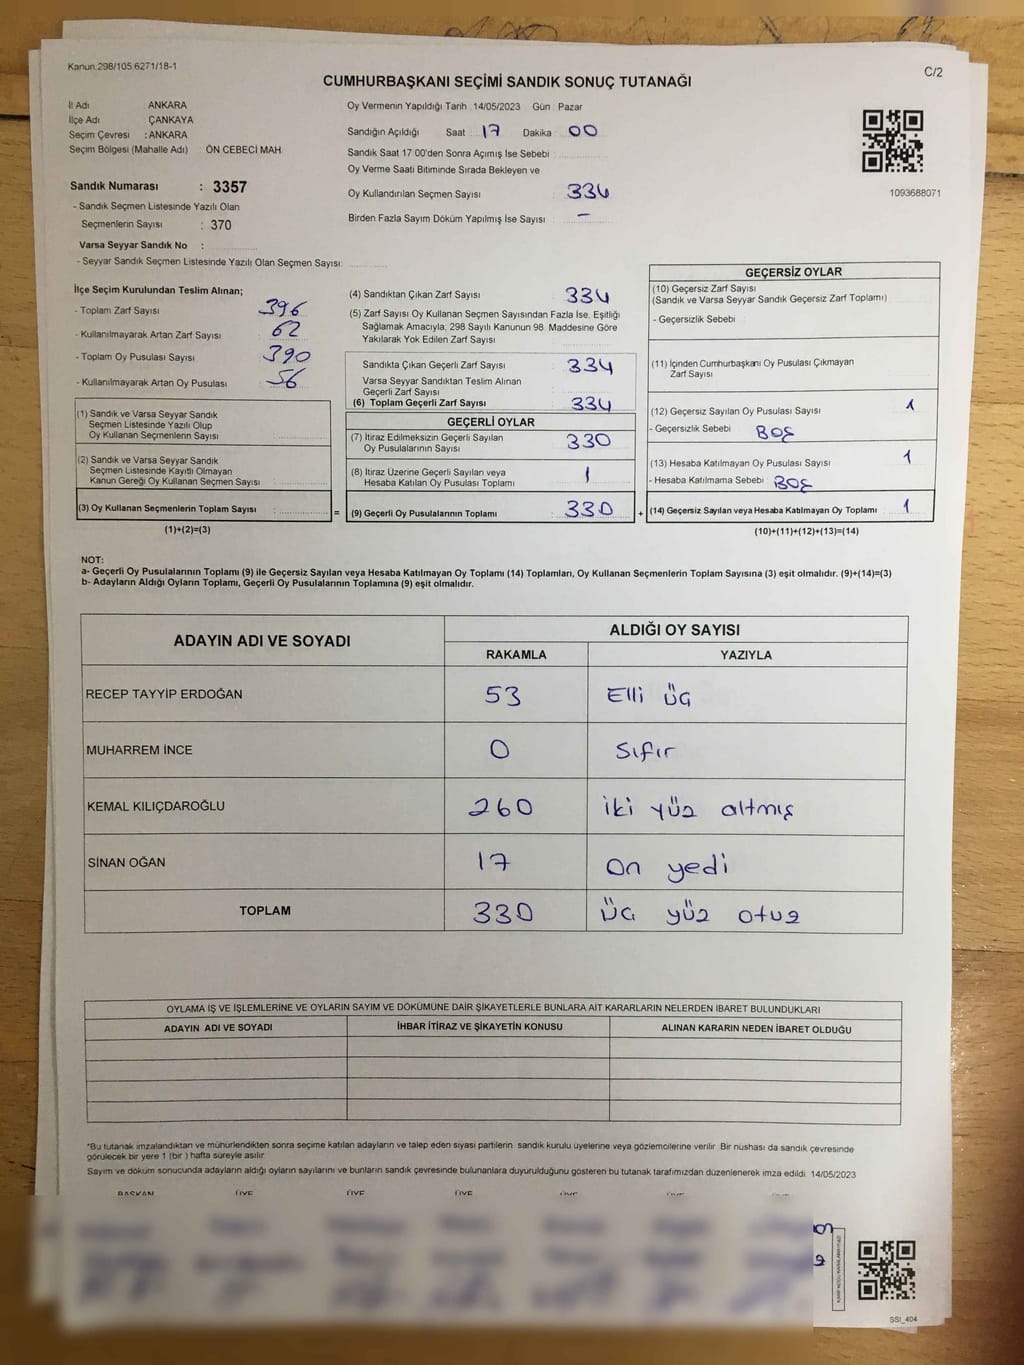 Kanun:298/105,6271/18-1
C/2
CUMHURBAŞKANI SEÇİMİ SANDIK SONUÇ TUTANAĞI
İl Adı ANKARA
İlçe Adı ÇANKAYA
Seçim Çevresi : ANKARA
Seçim Bölgesi (Mahalle Adı) : ÖN CEBECİ MAH.
Sandık Numarası : 3357
- Sandık Seçmen Listesinde Yazılı Olan
Seçmenlerin Sayısı : 370
Varsa Seyyar Sandık No :
- Seyyar Sandık Seçmen Listesinde Yazılı Olan Seçmen Sayısı:
Oy Vermenin Yapıldığı Tarih : 14/05/2023 Gün : Pazar
Sandığın Açıldığı Saat 17 Dakika 00
Sandık Saat 17:00'den Sonra Açımış İse Sebebi :
Oy Verme Saati Bitiminde Sırada Bekleyen ve
Oy Kullandırılan Seçmen Sayısı : 334
Birden Fazla Sayım Döküm Yapılmış İse Sayısı : -
1093688071
İlçe Seçim Kurulundan Teslim Alınan;
- Toplam Zarf Sayısı : 396
- Kullanılmayarak Artan Zarf Sayısı : 62
- Toplam Oy Pusulası Sayısı : 390
- Kullanılmayarak Artan Oy Pusulası : 56
(1) Sandık ve Varsa Seyyar Sandık
Seçmen Listesinde Yazılı Olup
Oy Kullanan Seçmenlerin Sayısı :
(2) Sandık ve Varsa Seyyar Sandık
Seçmen Listesinde Kayıtlı Olmayan
Kanun Gereği Oy Kullanan Seçmen Sayısı :
(3) Oy Kullanan Seçmenlerin Toplam Sayısı :
(1)+(2)=(3)
(4) Sandıktan Çıkan Zarf Sayısı : 334
(5) Zarf Sayısı Oy Kullanan Seçmen Sayısından Fazla İse, Eşitliği
Sağlamak Amacıyla; 298 Sayılı Kanunun 98. Maddesine Göre
Yakılarak Yok Edilen Zarf Sayısı :
Sandıkta Çıkan Geçerli Zarf Sayısı : 334
Varsa Seyyar Sandıktan Teslim Alınan
Geçerli Zarf Sayısı :
(6) Toplam Geçerli Zarf Sayısı : 334
GEÇERLİ OYLAR
(7) İtiraz Edilmeksizin Geçerli Sayılan
Oy Pusulalarının Sayısı : 330
(8) İtiraz Üzerine Geçerli Sayılan veya
Hesaba Katılan Oy Pusulası Toplamı : 1
= (9) Geçerli Oy Pusulalarının Toplamı : 330 +
GEÇERSİZ OYLAR
(10) Geçersiz Zarf Sayısı
(Sandık ve Varsa Seyyar Sandık Geçersiz Zarf Toplamı) :
- Geçersizlik Sebebi :
(11) İçinden Cumhurbaşkanı Oy Pusulası Çıkmayan
Zarf Sayısı :
(12) Geçersiz Sayılan Oy Pusulası Sayısı : 1
- Geçersizlik Sebebi : BOŞ
(13) Hesaba Katılmayan Oy Pusulası Sayısı : 1
- Hesaba Katılmama Sebebi : BOŞ
(14) Geçersiz Sayılan veya Hesaba Katılmayan Oy Toplamı : 1
(10)+(11)+(12)+(13)=(14)
NOT:
a- Geçerli Oy Pusulalarının Toplamı (9) ile Geçersiz Sayılan veya Hesaba Katılmayan Oy Toplamı (14) Toplamları, Oy Kullanan Seçmenlerin Toplam Sayısına (3) eşit olmalıdır. (9)+(14)=(3)
b- Adayların Aldığı Oyların Toplamı, Geçerli Oy Pusulalarının Toplamına (9) eşit olmalıdır.
ADAYIN ADI VE SOYADI ALDIĞI OY SAYISI
RAKAMLA YAZIYLA
RECEP TAYYİP ERDOĞAN 53 Elli üç
MUHARREM İNCE 0 Sıfır
KEMAL KILIÇDAROĞLU 260 iki yüz altmış
SİNAN OĞAN 17 On yedi
TOPLAM 330 üç yüz otuz
OYLAMA İŞ VE İŞLEMLERİNE VE OYLARIN SAYIM VE DÖKÜMÜNE DAİR ŞİKAYETLERLE BUNLARA AİT KARARLARIN NELERDEN İBARET BULUNDUKLARI
ADAYIN ADI VE SOYADI İHBAR İTİRAZ VE ŞİKAYETİN KONUSU ALINAN KARARIN NEDEN İBARET OLDUĞU
*Bu tutanak imzalandıktan ve mühürlendikten sonra seçime katılan adayların ve talep eden siyasi partilerin sandık kurulu üyelerine veya gözlemcilerine verilir. Bir nüshası da sandık çevresinde
görülecek bir yere 1 (bir ) hafta süreyle asılır.
Sayım ve döküm sonucunda adayların aldığı oyların sayılarını ve bunların sandık çevresinde bulunanlara duyurulduğunu gösteren bu tutanak tarafımızdan düzenlenerek imza edildi. 14/05/2023
BAŞKAN ÜYE ÜYE ÜYE ÜYE ÜYE ÜYE
SSI_404